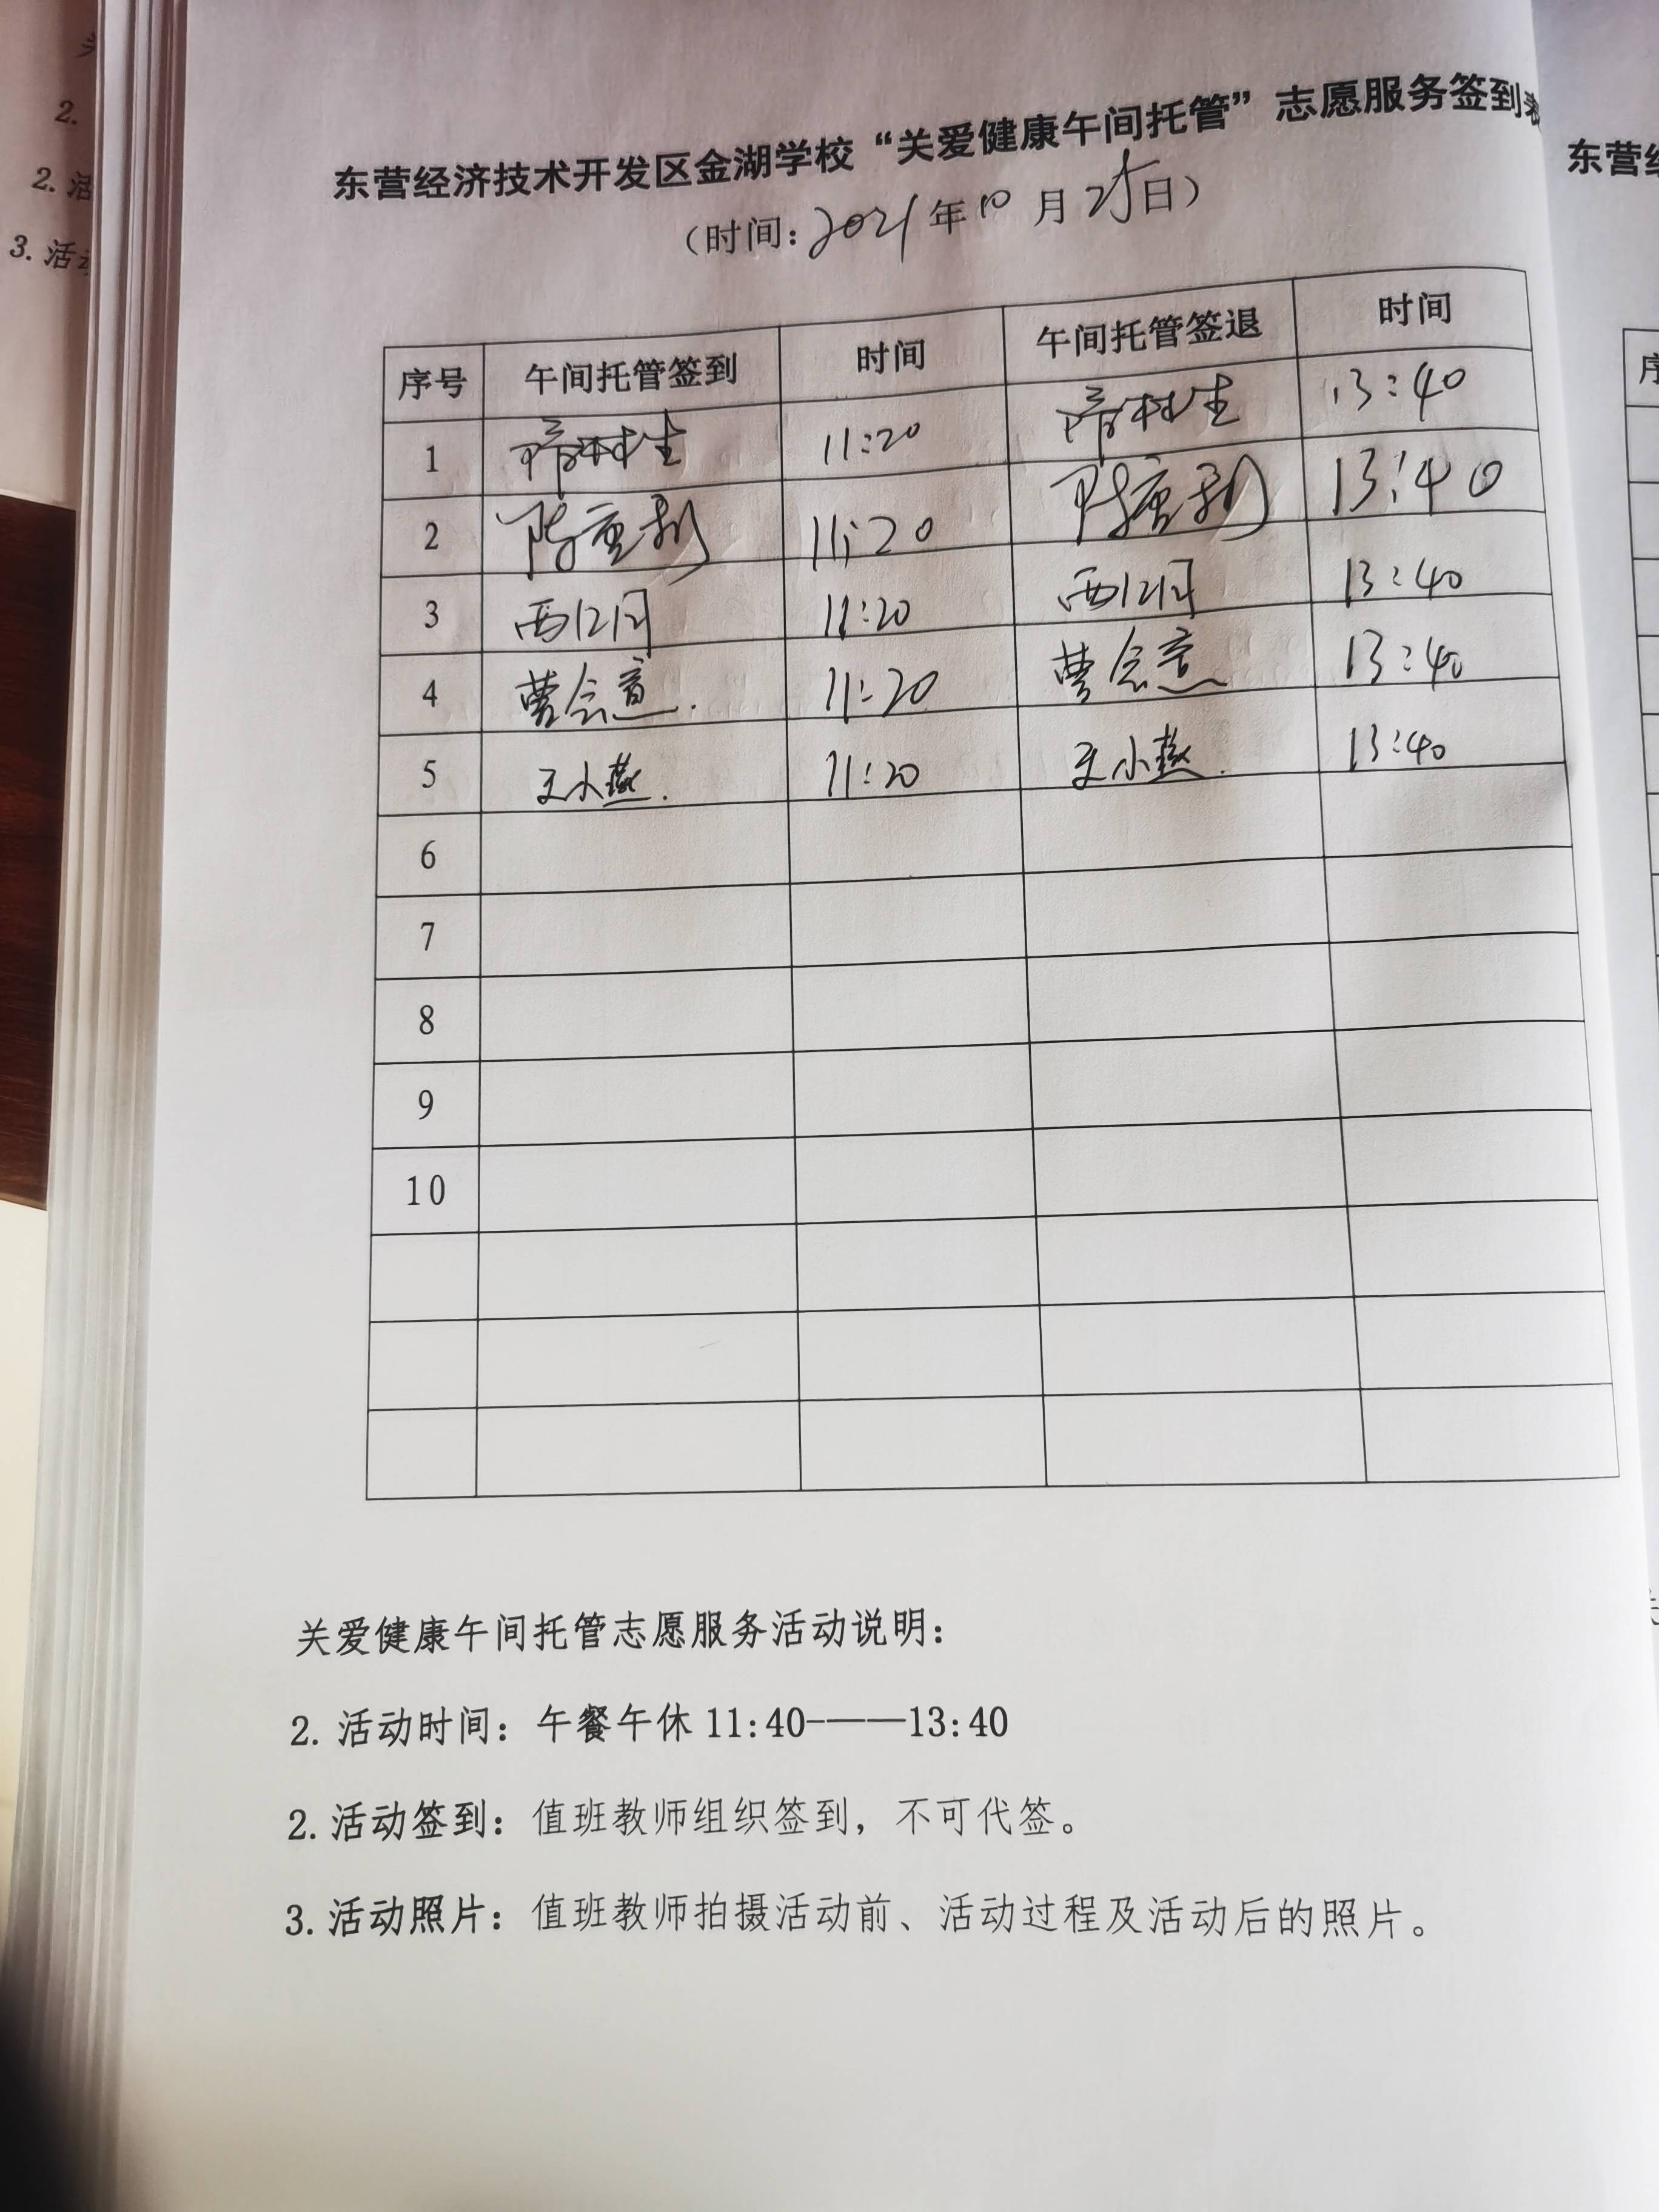 东营经济技术开发区金湖学校“关爱健康午间托管”志愿服务签到表
（时间：2021年10月25日）
序号 午间托管签到 时间 午间托管签退 时间
1 隋林生 11:20 隋林生 13:40
2 陈重利 11:20 陈重利 13:40
3 11:20 13:40
4 曹会意. 11:20 曹会意 13:40
5 王小燕. 11:20 王小燕. 13:40
6
7
8
9
10
关爱健康午间托管志愿服务活动说明：
2. 活动时间：午餐午休 11:40-——13:40
2. 活动签到：值班教师组织签到，不可代签。
3. 活动照片：值班教师拍摄活动前、活动过程及活动后的照片。
2.
2. 活
3. 活动
东营经
序